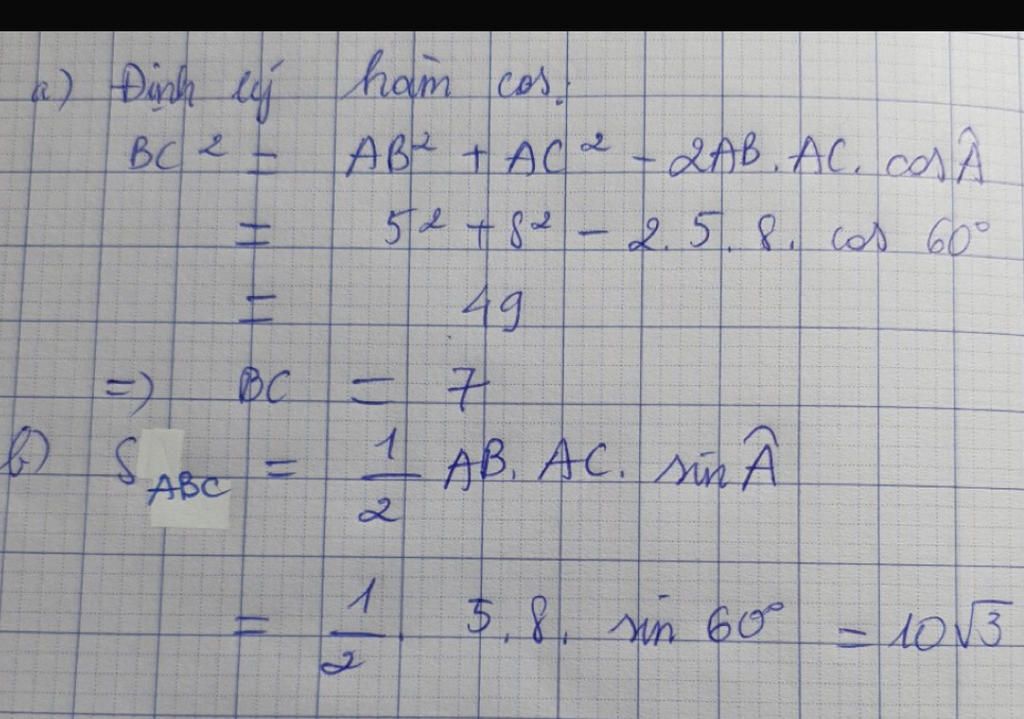 a) Định lý hàm cos.
BC² = AB² + AC² - 2AB. AC. cos Â
= 5² + 8² - 2. 5. 8. cos 60°
= 49
=) BC = 7
b) S ABC = 1/2 AB. AC. sin Â
= 1/2. 5. 8. sin 60° = 10√3